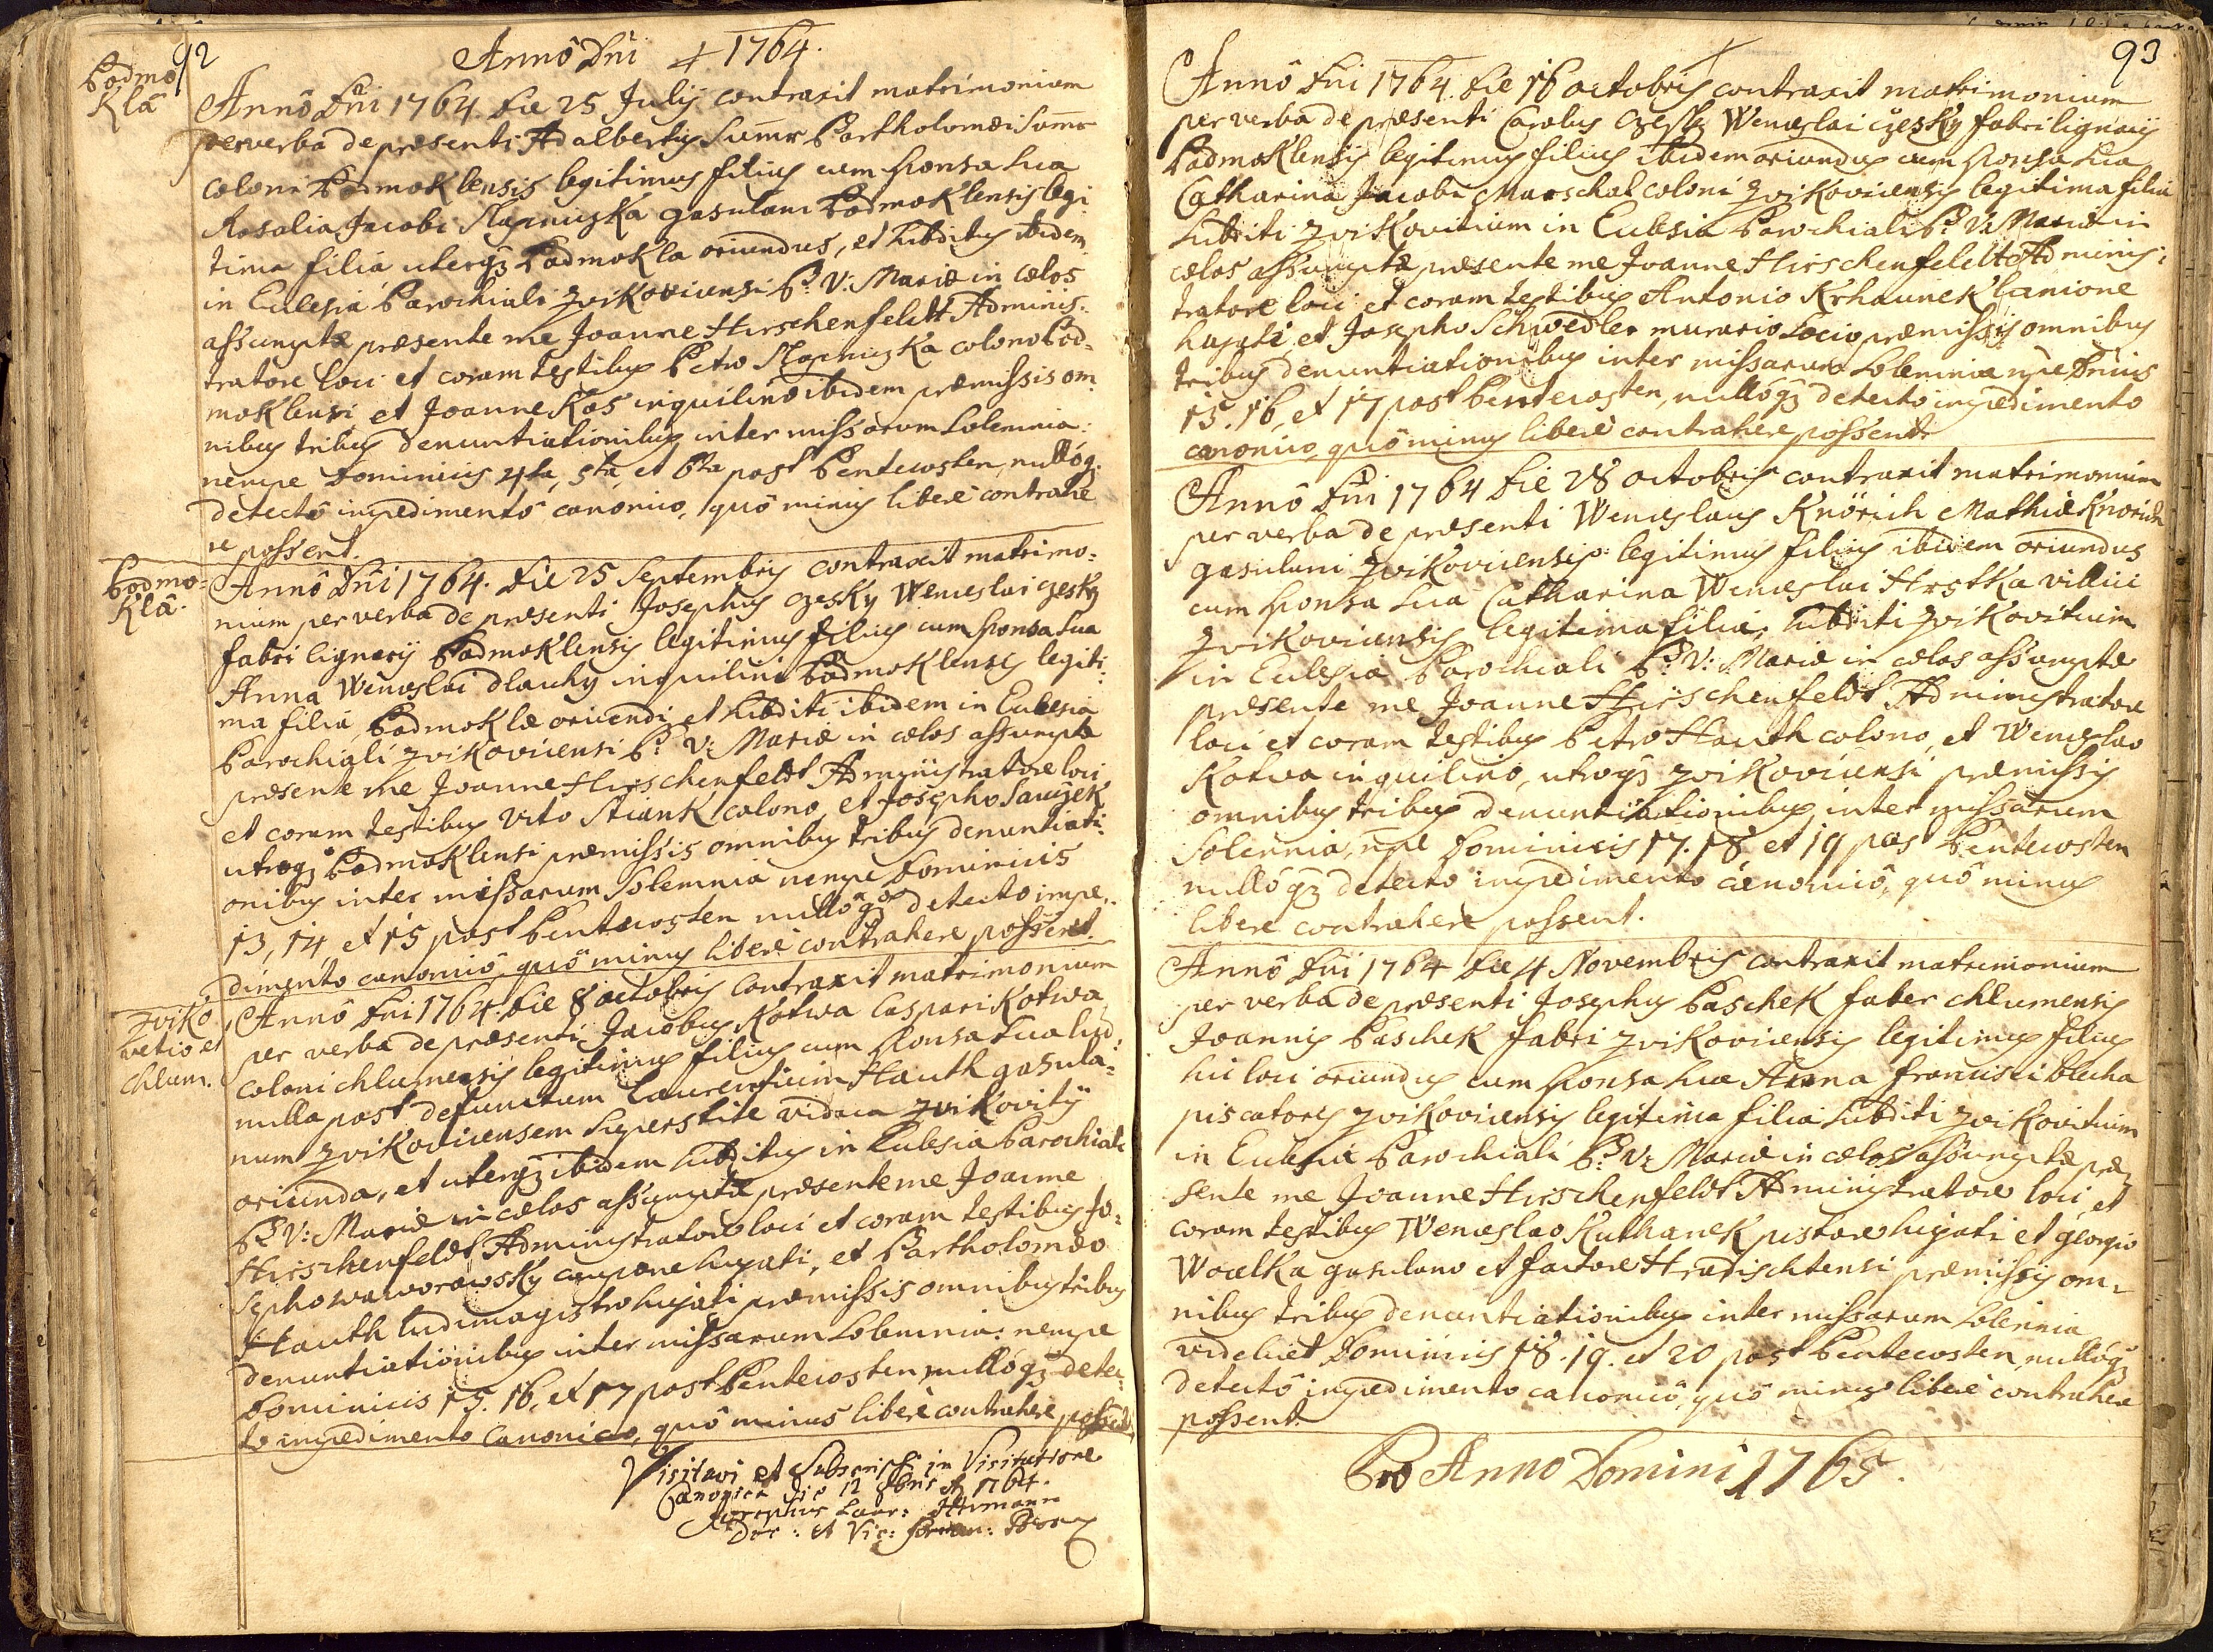 92
Annô Dni 1764.
Podmo
Klâ
Annô Dni 1764 Die 25 Julij contraxit matrimonium
per verba de præsenti Adalbertus Sumr Bartholomæi Sumr
coloni Podmoklensis legitimus filius cum sponsa sua
Rosalia Jacobi Slapniczka gasulani Podmoklensis legi:
tima filiâ uterq3 Podmokla oriundus, et subditus ibidem
in Ecclesiâ Parochiali Zvikoviensi B: V: Mariæ in cælos
assumptæ præsente me Joanne Hirschenfeldt Adminis:
tratore loci et coram testibus Petro Slapniczka colono Pod=
moklensi et Joanne Kos inquilinô ibidem præmissis om
nibus tribus denuntiationibus inter missarum Solemnia:
nempe Dominicis 4ta, 5ta, et 6ta post Pentecosten, nullôq3
detectô impedimentô canonico, quô minus liberè contrahe
re possent.
Podmo=
Klâ.
Annô Dni 1764. Die 25 Septembris contraxit matrimo:
nium per verba de præsenti Josephus Czesky Wenceslai Czesky
fabri lignarij Podmoklensis legitimus filius cum sponsa sua
Anna Wenceslai dlauhy inquilini Podmoklensis legiti:
ma filiâ, Podmoklæ oriundi et subditi ibidem in Ecclesiâ
Parochiali Zvikoviensi B: V: Mariæ in cælos assumptæ
præsente me Joanne Hirschenfeldt Administratore loci
et coram testibus Vito Stiank colono, et Josepho Sawzek
utroq3 Podmoklensi præmissis omnibus tribus denuntiati:
onibus inter missarum Solemnia nempe Dominicis
13, 14, et 15 post Pentecosten nullôq3 detecto impe:
dimento canonicô quô minus liberè contrahere possent.
Zviko
vetio et
Chlum.
Annô Dni 1764. Die 8 octobris contraxit matrimonium
per verba de præsenti Jacobus Kotwa Caspari Kotwa
coloni chlumensis legitimus filius cum sponsa sua lud
milla post defunctum Laurentium Hauth gasula=
num Zvikoviensem superstite vidua Zvikovitij
oriunda, et uterq3 ibidem subditus in Ecclesia Parochiali
B: V: Mariæ in cælos assumptæ præsente me Joanne
Hirschenfeldt Administratore loci et coram testibus Jo=
sepho Waworowsky caupone hujati, et Bartholomæo
Hauth ludimagistro hujati præmissis omnibus tribus
denuntiationibus inter missarum Solemnia: nempe
Dominicis 15. 16, et 17 post Pentecosten, nullôq3 detec:
to impedimento Canonico, quô minus liberè contrahere possent.
Visitavi et Subscripsi in Visitatione
Canonica die 12 8bris A 1764.
Josephus Laur: Hermann
Dec: et Vic: foran:
93
Annô Dni 1764. Die 16 octobris contraxit matrimonium
per verba de præsenti Carolus Czesky Wenceslai Czesky fabri lignarij
Podmoklensis legitimus filius ibidem oriundus cum sponsa sua
Catharina Jacobi Marschal coloni Zvikoviensis legitima filia
subditi Zvikovitium in Ecclesiâ Parochiali B: V: Mariæ in
cælos assumptæ præsente me Joanne Hirschenfeldt Adminis:
tratore loci et coram testibus Antonio Krhaunek lanione
hujati, et Josepho Schwedler murario Socio præmissis omnibus
tribus denuntiationibus inter missarum Solemnia npe Dnicis
15. 16, et 17 post Pentecosten, nullôq3 detecto impedimento
canonico quô minus liberè contrahere possent
Annô Dni 1764 Die 28 octobris contraxit matrimonium
per verba de præsenti Wenceslaus Knörich Mathiæ Knorich
gasulani Zvikoviensis legitimus filius ibidem oriundus
cum sponsa sua Catharina Wenceslai Hrstka villici
Zvikoviensis legitima filia, subditi Zvikovitium
in Ecclesia Parochiali B: V: Mariæ in cælos assumptæ
præsente me Joanne Hirschenfeldt Administratore
loci et coram testibus Petro Hauth colono, et Wenceslao
Kotwa inquilinô, utroq3 Zvikoviensi præmissis
omnibus tribus denuntiationibus inter missarum
Solennia, npe Dominicis 17. 18 et 19 post Pentecosten
nullôq3 detecto impedimento canonicô, quô minus
libere contrahere possent.
Annô Dni 1764 Die 4 Novembris contraxit matrimonium
per verba de præsenti Josephus Paschek faber chlumensis
Joannis Paschek fabri Zvikoviensis legitimus filius
hii loci oriundus cum sponsa sua Anna Francisci blecha
piscatoris Zvikoviensis legitima filia subditi Zvikovitium
in Ecclesia Parochiali B: V: Mariæ in cælos assumptæ præ
sente me Joanne Hirschenfeldt Administratore loci, et
coram testibus Wenceslao Kuthanek pistore hujati et georgio
Woalka gasulano et factore Hradischtensi præmissis om=
nibus tribus denuntiationibus inter missarum Solennia
videlicet Dominicis 18. 19. et 20 post Pentecosten, nullôq3
detectô impedimento canonicô, quô minus liberè contrahere
possent.
Pro Anno Domini 1765.